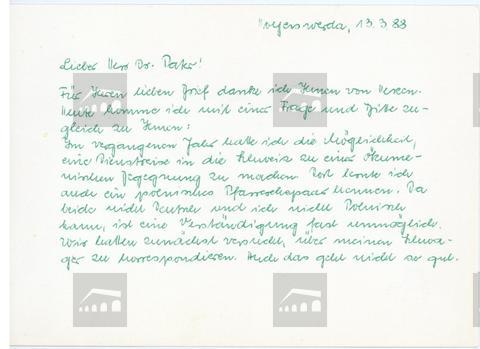 Hoyerswerda, 13.3.88
Lieber Herr Dr. Pater!
Für Ihren lieben Brief danke ich Ihnen von Herzen.
Heute komme ich mit einer Frage und Bitte zu-
gleich zu Ihnen:
Im vergangenen Jahr hatte ich die Möglichkeit,
eine Dienstreise in die Schweiz zu einer Ökume-
nischen Begegnung zu machen Dort lernte ich
auch ein polnisches Pfarrerehepaar kennen. Da
beide nicht Deutsch und ich nicht Polnisch
kann, ist eine Verständigung fast unmöglich.
Wir hatten zunächst versucht, über meinen Schwa-
ger zu korrespondieren. Auch das geht nicht so gut.